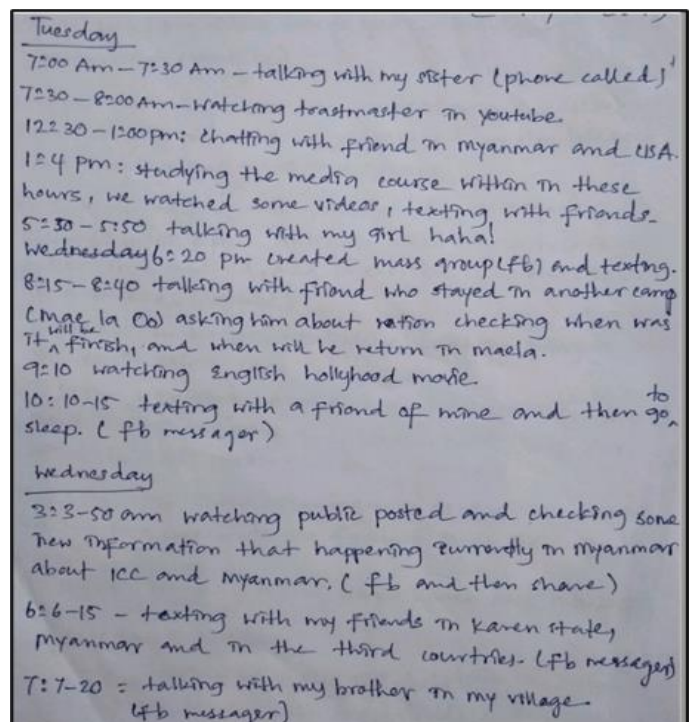 Tuesday
7:00 Am – 7:30 Am – talking with my sister (phone called)
7:30 – 8:00 Am – watching toastmaster in youtube.
12:30 – 1:00 pm: chatting with friend in myanmar and USA.
1:4 pm: studying the media course within in these
hours, we watched some videos, texting with friends.
5:30 – 5:50 talking with my girl haha!
Wednesday 6:20 pm created mass group (fb) and texting.
8:15 – 8:40 talking with friend who stayed in another camp
(mae la Oo) asking him about ration checking when was
it will be finish, and when will he return in maela.
9:10 watching English hollyhood movie.
10:10-15 texting with a friend of mine and then go to
sleep. (fb messager)
Wednesday
3:3-50 am watching public posted and checking some
new information that happening currently in myanmar
about ICC and Myanmar. (fb and then share)
6:6-15 – texting with my friends in Karen state,
Myanmar and in the third countries. (fb messager)
7:7-20 = talking with my brother in my village.
(fb messager)